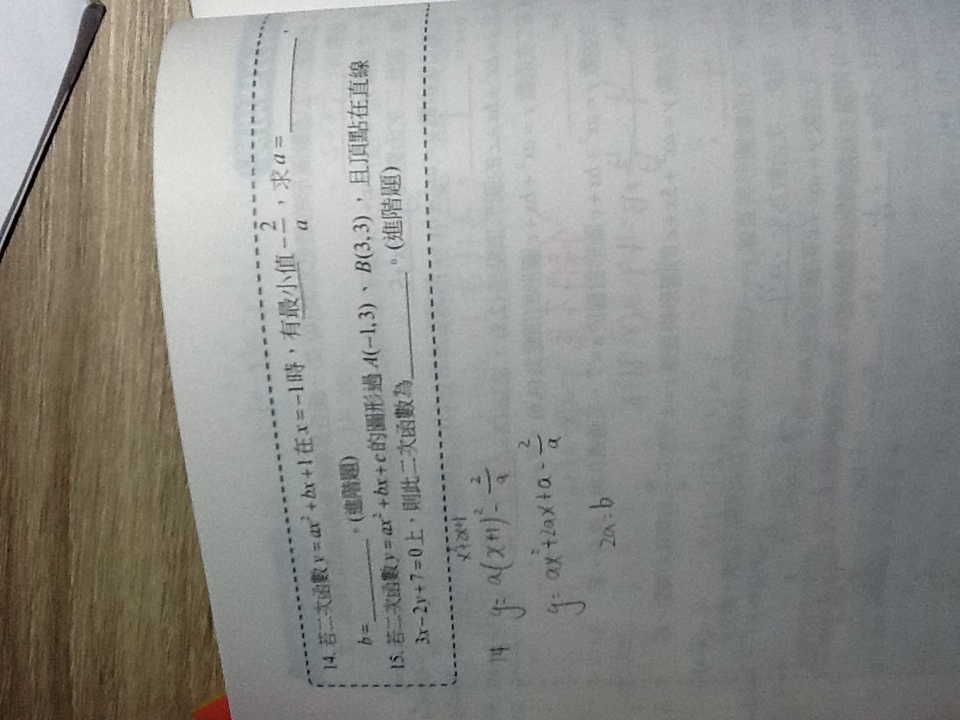 14. 若二次函數 y = ax² + bx + 1 在 x = −1 時，有最小值 −2/a，求 a = ________，
b = ________。(進階題)
15. 若二次函數 y = ax² + bx + c 的圖形過 A(−1,3)、B(3,3)，且頂點在直線
3x − 2y + 7 = 0 上，則此二次函數為________。(進階題)
x²+2x+1
14 y = a(x+1)² − 2/a
y = ax² + 2ax + a − 2/a
2a = b